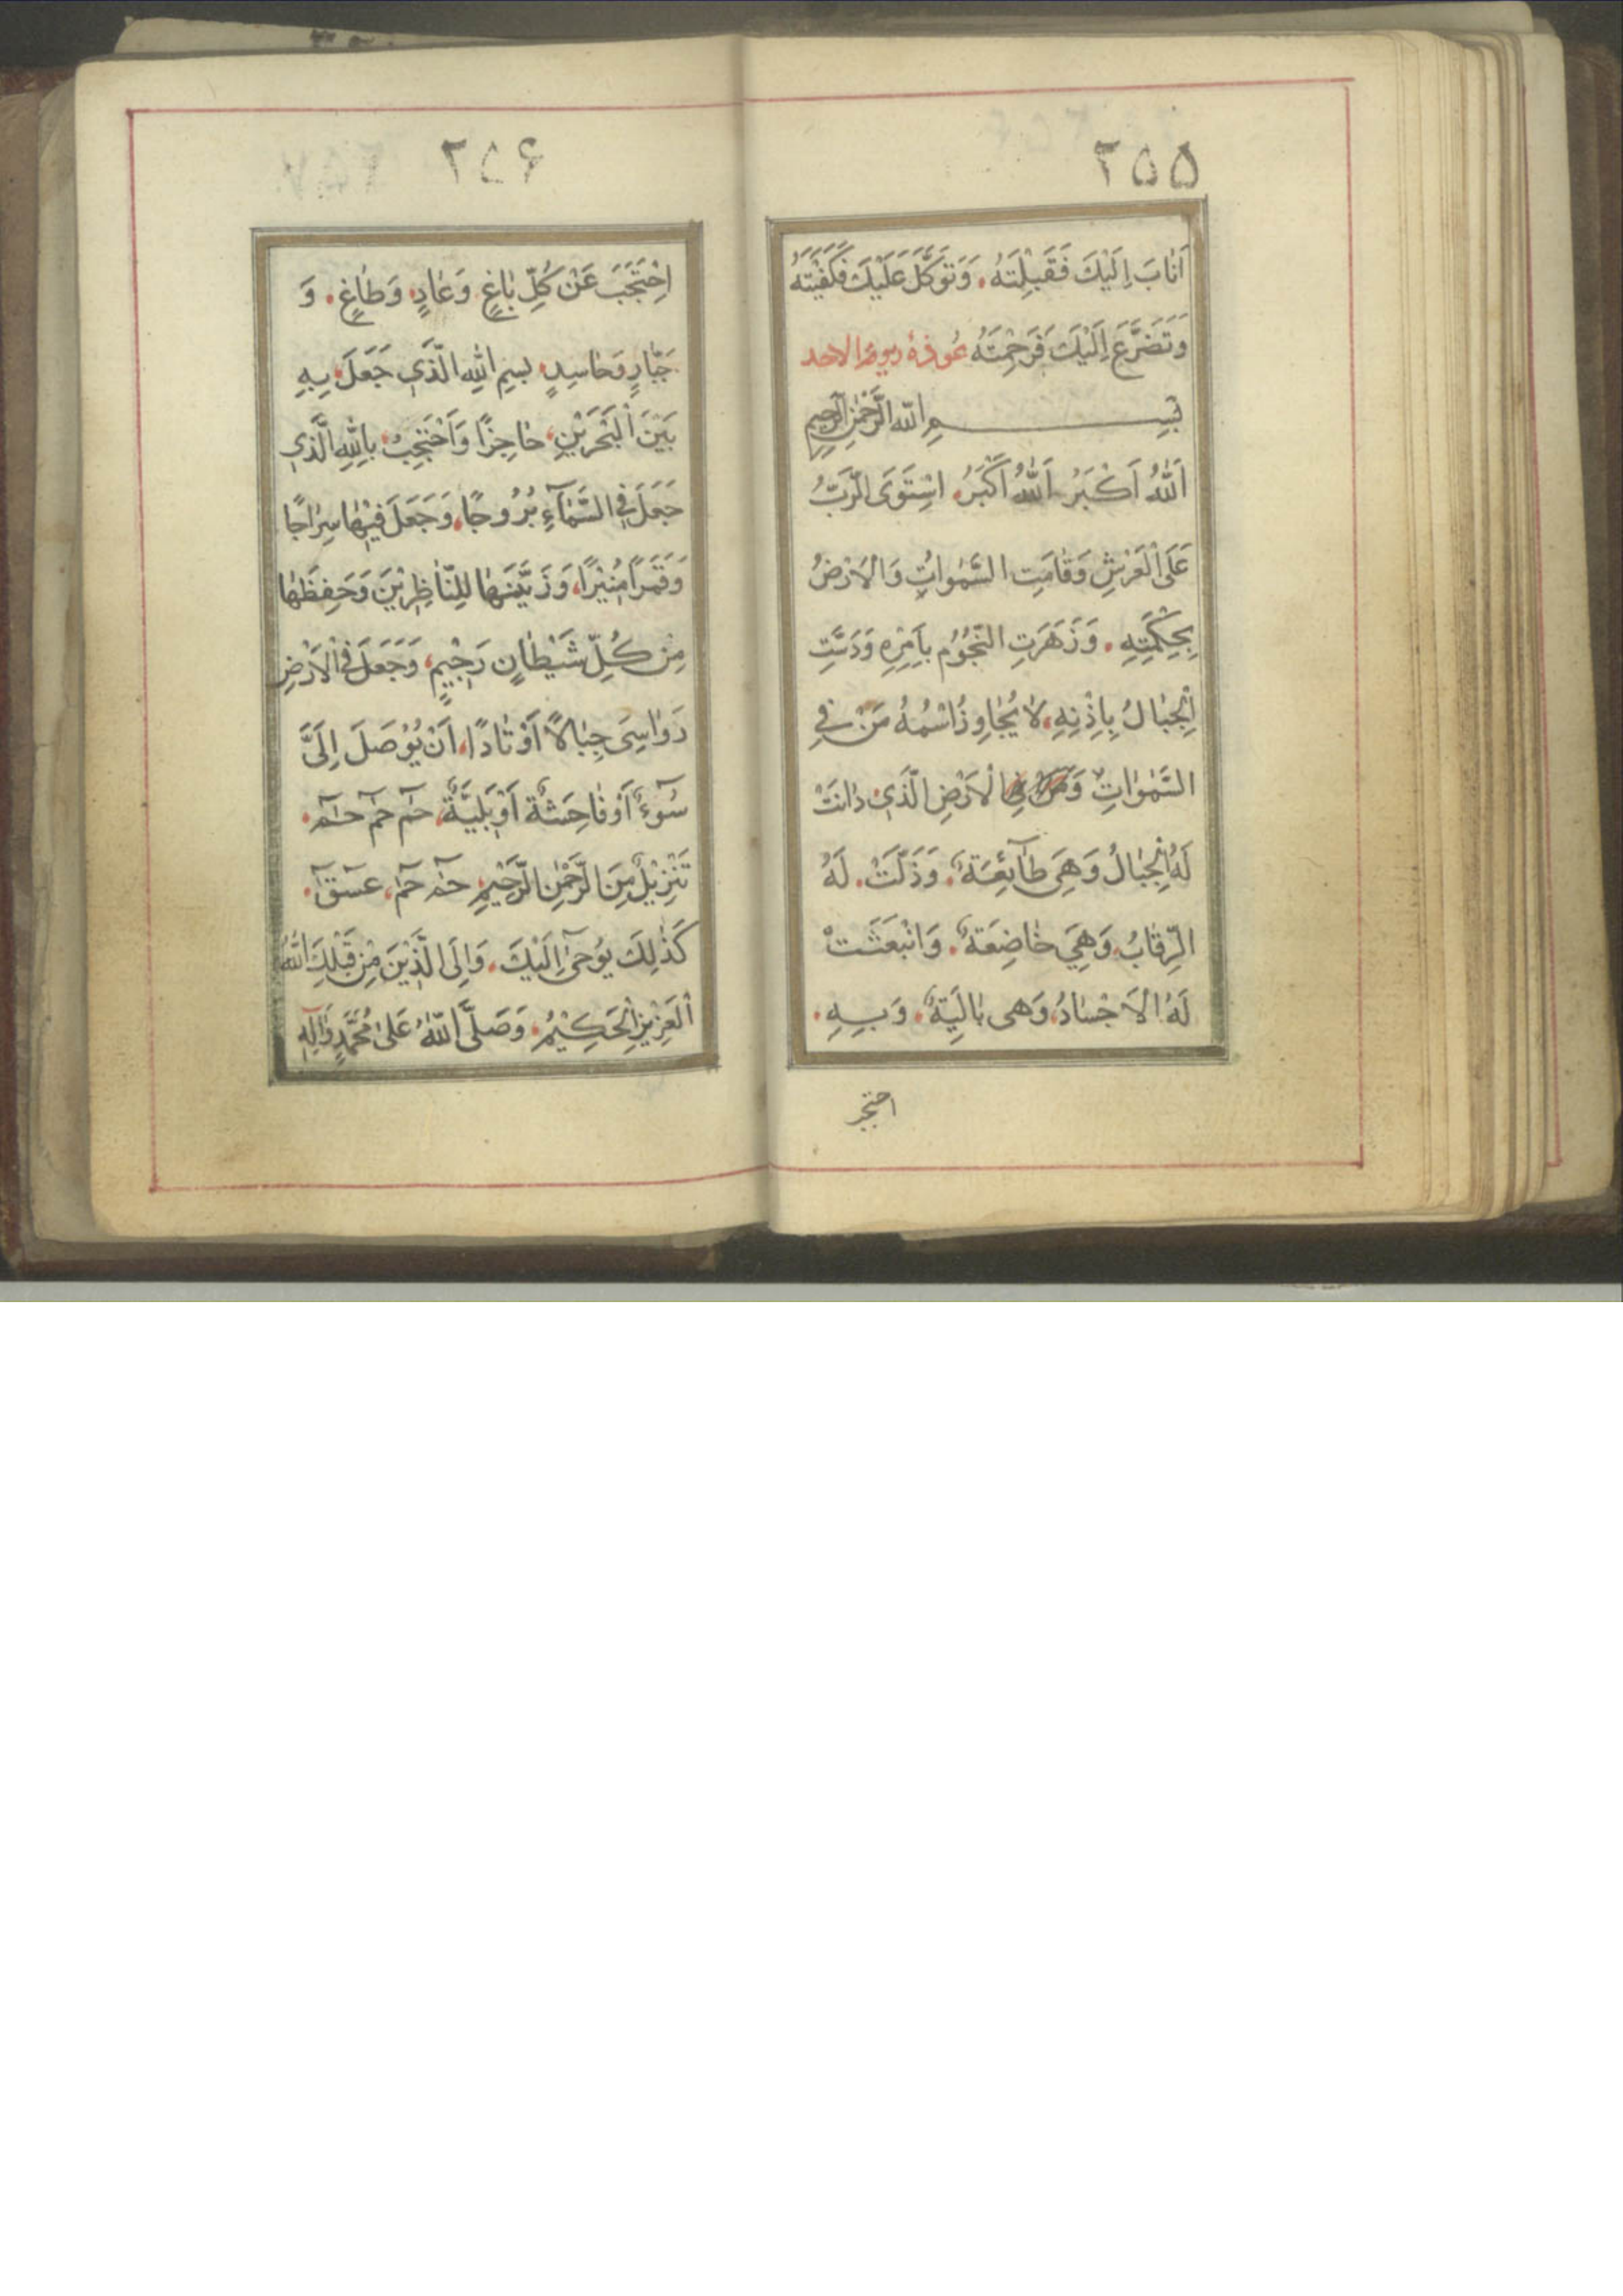 ۲۵۵
اَنٰابَ اِلَيْكَ فَقَبِلْتَهُ. وَتَوَكَّلَ عَلَيْكَ فَكَفَيْتَهُ
وَتَضَرَّعَ اِلَيْكَ فَرَحِمْتَهُ عُوذهٔ يوم الاحد
بِسْمِ اللّٰهِ الرَّحْمٰنِ الرَّحِيمِ
اَللّٰهُ اَكْبَرُ اَللّٰهُ اَكْبَرُ. اسْتَوَى الرَّبُّ
عَلَى الْعَرْشِ وَقٰامَتِ السَّمٰوٰاتُ وَالْاَرْضُ
بِحِكْمَتِهِ. وَزَهَرَتِ النُّجُوُمُ بِاَمْرِهِ وَرَسَتِ
الْجِبٰالُ بِاِذْنِهِ، لٰا يُجٰاوِزُ اسْمُهُ مَنْ فِي
السَّمٰوٰاتِ وَ الْاَرْضِ الَّذَي دٰانَتْ
لَهُ الْجِبٰالُ وَهِيَ طٰآئِعَةٌ. وَذَلَّتْ. لَهُ
الرِّقٰابُ وَهِيَ خٰاضِعَةٌ. وَانْبَعَثَتْ
لَهُ الْاَجْسٰادُ، وَهى بٰالِيَةٌ. وَبِهِ.
احتجب
۲۵۶
اِحْتَجَبَ عَنْ كُلِّ بٰاغٍ وَعٰادٍ وَطٰاغٍ. وَ
جَبّٰارٍ وَحٰاسِدٍ بِسمِ اللّٰهِ الَّذَي جَعَلَ بِهِ
بَيْنَ الْبَحْرَيْنِ، حٰاجِزًا وَاَحْتَجِبُ بِاللّٰهِ الَّذي
جَعَلَ فِي السَّمٰآءِ بُرُوجًا، وَجَعَلَ فيْهٰا سِرٰاجًا
وَقَمَرًا مُنيْرًا، وَزَيَّنَهٰا لِلنّٰاظِرِيْنَ وَحَفِظَهٰا
مِنْ كُلِّ شَيْطٰانٍ رَجْيمٍ، وَجَعَلَ فِي الْاَرْضِ
رَوٰاسِىَ جِبٰالًا اَوْتٰادًا، اَنْ يُوْصَلَ اِلَيَّ
سُوٓءٌ اَوْ فٰاحِشَةٌ اَوْ بَلِيَّةٌ، حٰم حٰم حٰم.
تَنْزِيْلٌ مِنَ الرَّحْمٰنِ الرَّحْيمِ حٰم حٰم، عسق.
كَذٰلِكَ يُوحىٰٓ اِلَيْكَ. وَاِلَى الَّذيْنَ مِنْ قَبْلِكَ اللّٰهُ
الْعَزِيْزِ الْحَكِيْمُ. وَصَلَّى اللّٰهُ عَلىٰ مُحَمَّدٍ وَاٰلِهِ